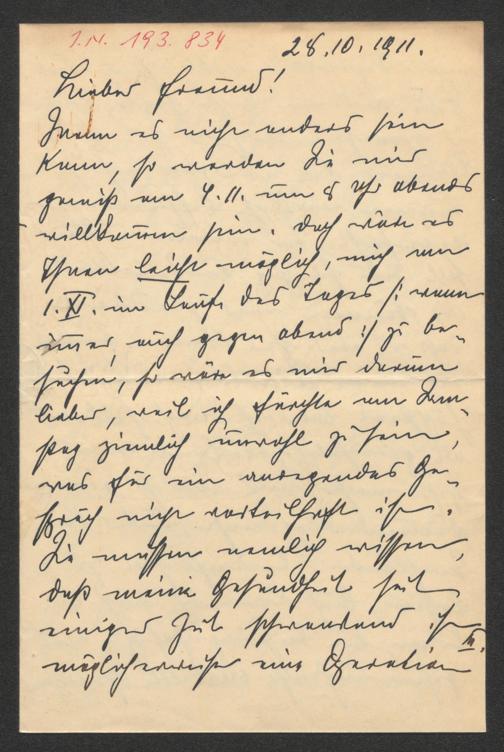 I.N. 193.834
28.10.1911.
Lieber Freund!
Wenn es nicht anders sein
kann, so werden Sie mir
gewiß am 4.11. um 8 Uhr abends
willkommen sein. Doch wäre es
Ihnen leicht möglich, mich am
1. XI. im Laufe des Tages /: wann
immer, auch gegen abend :/ zu be-
suchen, so wäre es mir darum
lieber, weil ich fürchte am Sam-
stag ziemlich unwohl zu sein,
was für ein anregendes Ge-
spräch nicht vorteilhaft ist.
Sie müssen nemlich wissen,
daß meine Gesundheit seit
einiger Zeit schwankend ist
u.
möglicherweise eine Operation